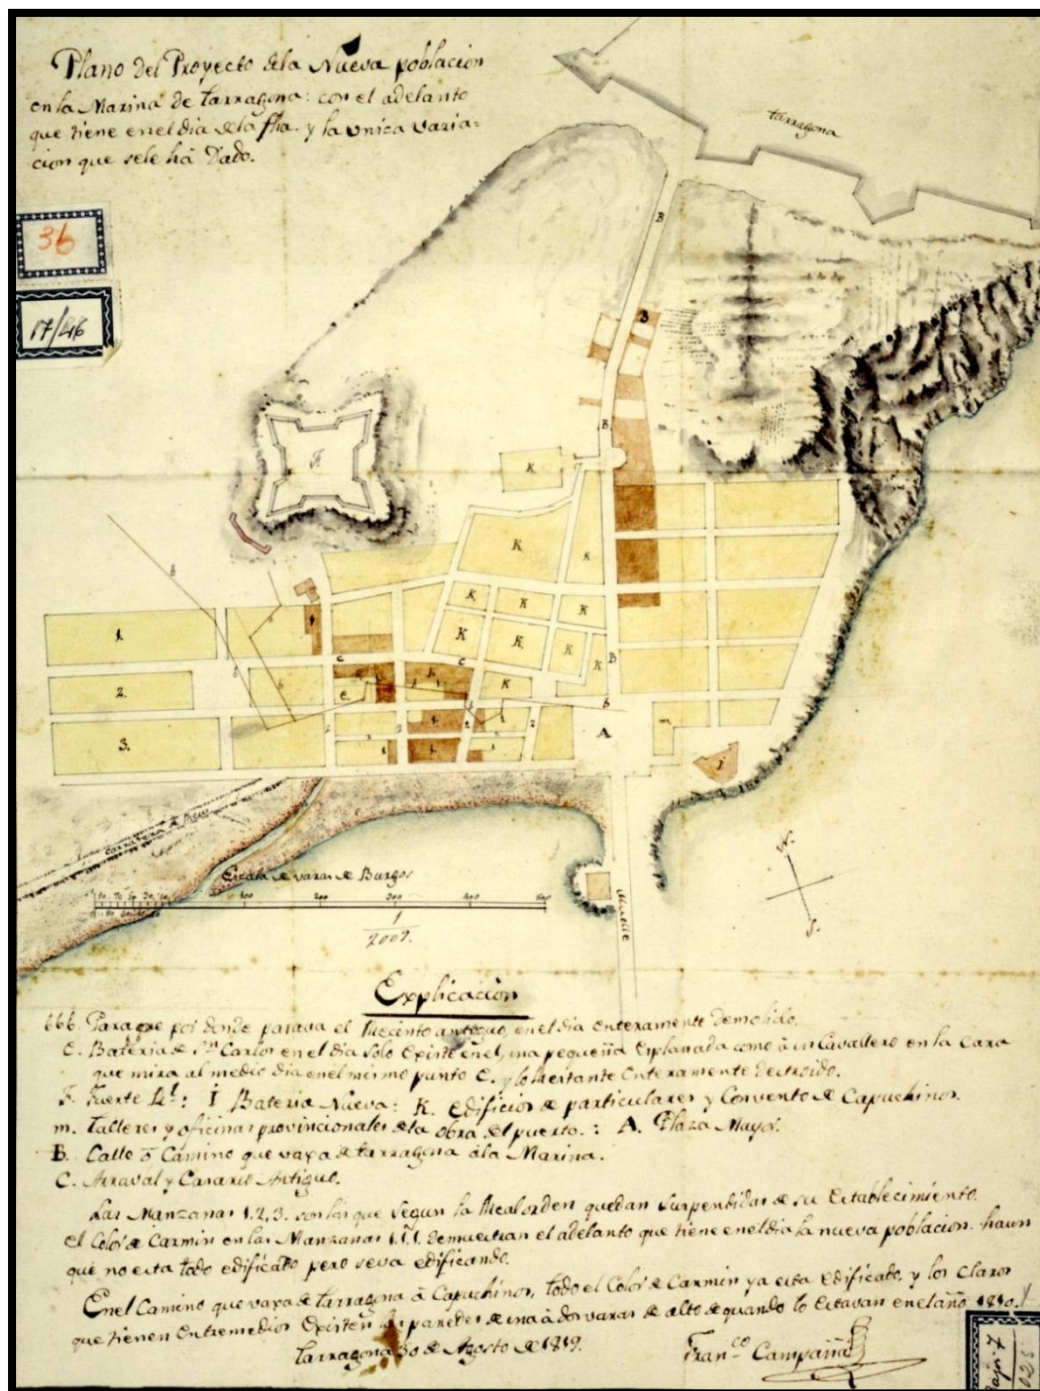 Plano del Proyecto dela Nueva poblacion
en la Marina de tarragona: con el adelanto
que tiene en el dia de la fha. y la vnica varia-
cion que sele há Dado.
tarragona
36
17/46
B
B
B
K
F
K
K
6
K
K
K
1.
K
K
K
K
B
2.
K
K
3.
A
m
i
Carretera de Reus
N.
S.
Escala de varas de Burgos
100 200 300 400 500
1
2009.
Muelle
Explicacion
666. Parage por donde pasava el Recinto antiguo, en el dia enteramente demolido.
E. Bateria de Sn Carlos en el dia solo Existe en el, una pequeña Esplanada como â un Cavallero en la Cara
que mira al medio dia en el mismo punto E. y lo restante Enteramente destruido.
F. Fuerte Rl: I Bateria Nueva: K. Edificios de particulares y Convento de Capuchinos.
m. Talleres y oficinas provincionales de la obra del puerto.: A. Plaza Mayor.
B. Calle ō Camino que vaxa de tarragona ála Marina.
C. Arraval y Caserio Antiguo.
Las Manzanas 1.2.3. son las que segun la Real orden quedan suspendidas de su Establecimiento.
el Color de Carmin en las Manzanas 1.1.1. demuestran el adelanto que tiene en el dia la nueva poblacion. haun
que no esta todo edificado pero seva edificando.
En el Camino que vaxa de tarragona â Capuchinos, todo el Color de Carmin ya esta Edificado, y los Claros
que tienen Entremedios Existen paredes de una â dos varas de alto de quando lo Estavan en el año 1810.
Tarragona 30 de Agosto de 1819.
Fran.co Campaña